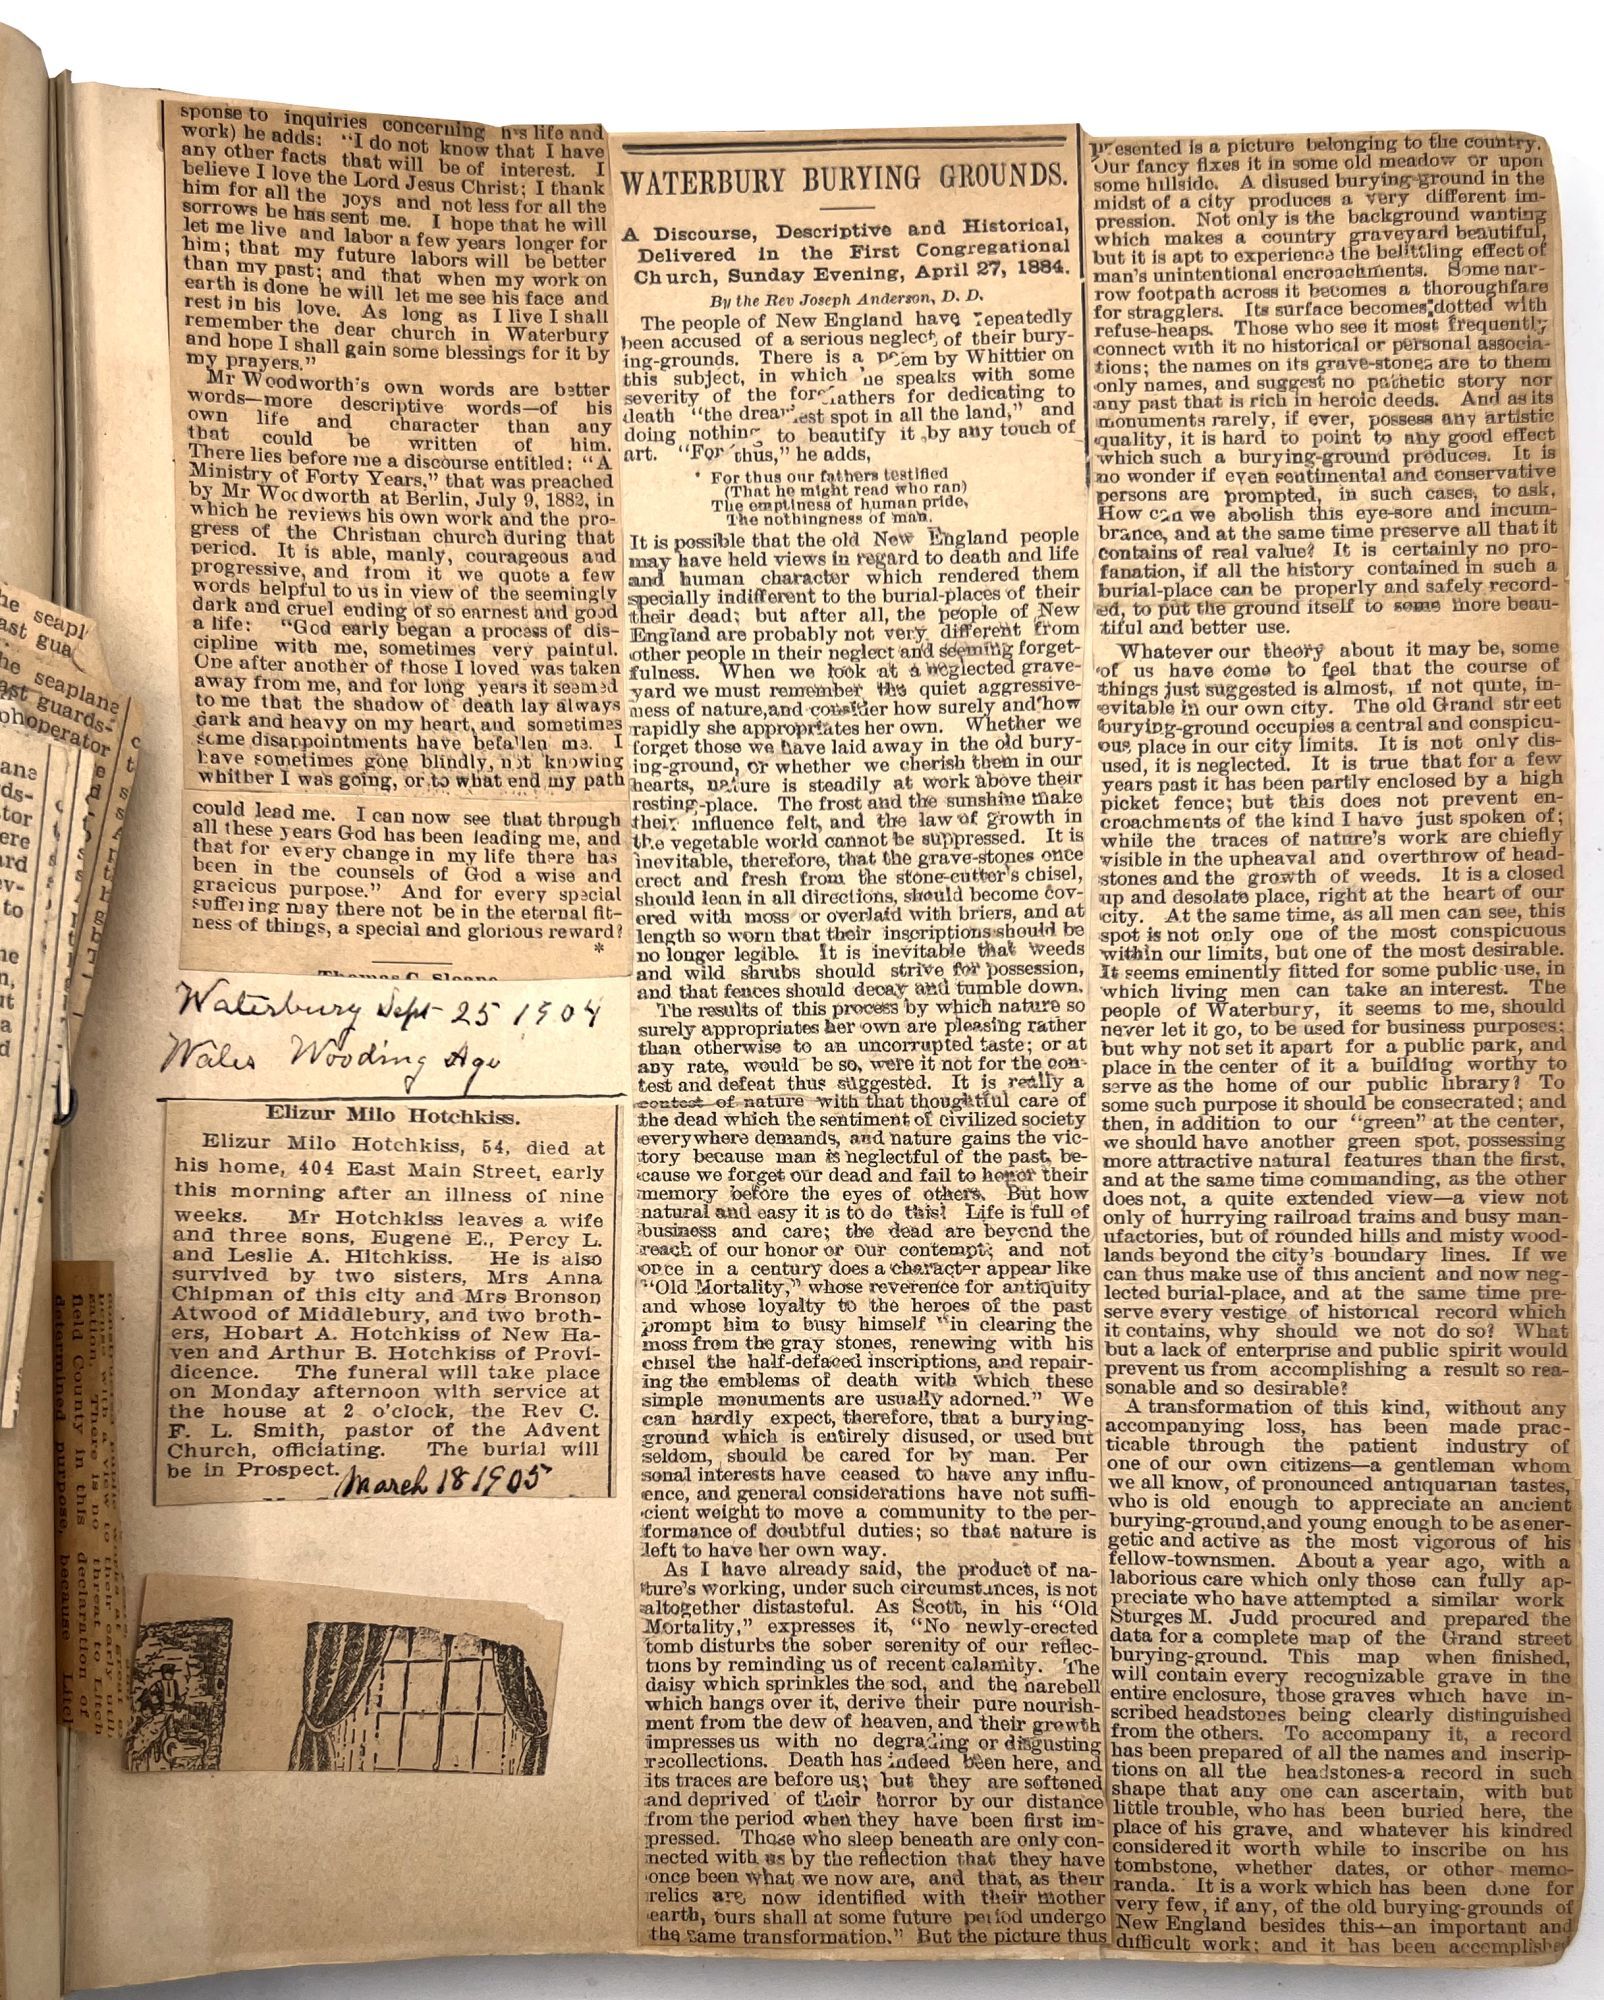 sponse to inquiries concerning his life and
work) he adds: "I do not know that I have
any other facts that will be of interest. I
believe I love the Lord Jesus Christ; I thank
him for all the joys and not less for all the
sorrows he has sent me. I hope that he will
let me live and labor a few years longer for
him; that my future labors will be better
than my past; and that when my work on
earth is done he will let me see his face and
rest in his love. As long as I live I shall
remember the dear church in Waterbury
and hope I shall gain some blessings for it by
my prayers."
Mr Woodworth's own words are better
words—more descriptive words—of his
own life and character than any
that could be written of him.
There lies before me a discourse entitled: "A
Ministry of Forty Years," that was preached
by Mr Woodworth at Berlin, July 9, 1882, in
which he reviews his own work and the pro-
gress of the Christian church during that
period. It is able, manly, courageous and
progressive, and from it we quote a few
words helpful to us in view of the seemingly
dark and cruel ending of so earnest and good
a life: "God early began a process of dis-
cipline with me, sometimes very painful.
One after another of those I loved was taken
away from me, and for long years it seemed
to me that the shadow of death lay always
dark and heavy on my heart, and sometimes
some disappointments have befallen me. I
have sometimes gone blindly, not knowing
whither I was going, or to what end my path
could lead me. I can now see that through
all these years God has been leading me, and
that for every change in my life there has
been in the counsels of God a wise and
gracious purpose." And for every special
suffering may there not be in the eternal fit-
ness of things, a special and glorious reward?
*
Thomas C. Sloane
Waterbury Sept 25 1904
Wales Wooding Age
Elizur Milo Hotchkiss.
Elizur Milo Hotchkiss, 54, died at
his home, 404 East Main Street, early
this morning after an illness of nine
weeks. Mr Hotchkiss leaves a wife
and three sons, Eugene E., Percy L.
and Leslie A. Hitchkiss. He is also
survived by two sisters, Mrs Anna
Chipman of this city and Mrs Bronson
Atwood of Middlebury, and two broth-
ers, Hobart A. Hotchkiss of New Ha-
ven and Arthur B. Hotchkiss of Provi-
dicence. The funeral will take place
on Monday afternoon with service at
the house at 2 o'clock, the Rev C.
F. L. Smith, pastor of the Advent
Church, officiating. The burial will
be in Prospect.
March 18 1905
WATERBURY BURYING GROUNDS.
A Discourse, Descriptive and Historical,
Delivered in the First Congregational
Church, Sunday Evening, April 27, 1884.
By the Rev Joseph Anderson, D. D.
The people of New England have repeatedly
been accused of a serious neglect of their bury-
ing-grounds. There is a poem by Whittier on
this subject, in which he speaks with some
severity of the forefathers for dedicating to
death "the dreariest spot in all the land," and
doing nothing to beautify it by any touch of
art. "For thus," he adds,
For thus our fathers testified
(That he might read who ran)
The emptiness of human pride,
The nothingness of man.
It is possible that the old New England people
may have held views in regard to death and life
and human character which rendered them
specially indifferent to the burial-places of their
their dead; but after all, the people of New
England are probably not very different from
other people in their neglect and seeming forget-
fulness. When we look at a neglected grave-
yard we must remember the quiet aggressive-
ness of nature, and consider how surely and how
rapidly she appropriates her own. Whether we
forget those we have laid away in the old bury-
ing-ground, or whether we cherish them in our
hearts, nature is steadily at work above their
resting-place. The frost and the sunshine make
their influence felt, and the law of growth in
the vegetable world cannot be suppressed. It is
inevitable, therefore, that the grave-stones once
erect and fresh from the stone-cutter's chisel,
should lean in all directions, should become cov-
ered with moss or overlaid with briers, and at
length so worn that their inscriptions should be
no longer legible. It is inevitable that weeds
and wild shrubs should strive for possession,
and that fences should decay and tumble down.
The results of this process by which nature so
surely appropriates her own are pleasing rather
than otherwise to an uncorrupted taste; or at
any rate, would be so, were it not for the con-
test and defeat thus suggested. It is really a
contest of nature with that thoughtful care of
the dead which the sentiment of civilized society
everywhere demands, and nature gains the vic-
tory because man is neglectful of the past, be-
cause we forget our dead and fail to honor their
memory before the eyes of others. But how
natural and easy it is to do this! Life is full of
business and care; the dead are beyond the
reach of our honor or our contempt; and not
once in a century does a character appear like
"Old Mortality," whose reverence for antiquity
and whose loyalty to the heroes of the past
prompt him to busy himself "in clearing the
moss from the gray stones, renewing with his
chisel the half-defaced inscriptions, and repair-
ing the emblems of death with which these
simple monuments are usually adorned." We
can hardly expect, therefore, that a burying-
ground which is entirely disused, or used but
seldom, should be cared for by man. Per
sonal interests have ceased to have any influ-
ence, and general considerations have not suffi-
cient weight to move a community to the per-
formance of doubtful duties; so that nature is
left to have her own way.
As I have already said, the product of na-
ture's working, under such circumstances, is not
altogether distasteful. As Scott, in his "Old
Mortality," expresses it, "No newly-erected
tomb disturbs the sober serenity of our reflec-
tions by reminding us of recent calamity. The
daisy which sprinkles the sod, and the harebell
which hangs over it, derive their pure nourish-
ment from the dew of heaven, and their growth
impresses us with no degrading or disgusting
recollections. Death has indeed been here, and
its traces are before us; but they are softened
and deprived of their horror by our distance
from the period when they have been first im-
pressed. Those who sleep beneath are only con-
nected with us by the reflection that they have
once been what we now are, and that, as their
relics are now identified with their mother
earth, ours shall at some future period undergo
the same transformation." But the picture thus
presented is a picture belonging to the country.
Our fancy fixes it in some old meadow or upon
some hillside. A disused burying-ground in the
midst of a city produces a very different im-
pression. Not only is the background wanting
which makes a country graveyard beautiful,
but it is apt to experience the belittling effect of
man's unintentional encroachments. Some nar-
row footpath across it becomes a thoroughfare
for stragglers. Its surface becomes dotted with
refuse-heaps. Those who see it most frequently
connect with it no historical or personal associa-
tions; the names on its grave-stones are to them
only names, and suggest no pathetic story nor
any past that is rich in heroic deeds. And as its
monuments rarely, if ever, possess any artistic
quality, it is hard to point to any good effect
which such a burying-ground produces. It is
no wonder if even sentimental and conservative
persons are prompted, in such cases, to ask,
How can we abolish this eye-sore and incum-
brance, and at the same time preserve all that it
contains of real value? It is certainly no pro-
fanation, if all the history contained in such a
burial-place can be properly and safely record-
ed, to put the ground itself to some more beau-
tiful and better use.
Whatever our theory about it may be, some
of us have come to feel that the course of
things just suggested is almost, if not quite, in-
evitable in our own city. The old Grand street
burying-ground occupies a central and conspicu-
ous place in our city limits. It is not only dis-
used, it is neglected. It is true that for a few
years past it has been partly enclosed by a high
picket fence; but this does not prevent en-
croachments of the kind I have just spoken of;
while the traces of nature's work are chiefly
visible in the upheaval and overthrow of head-
stones and the growth of weeds. It is a closed
up and desolate place, right at the heart of our
city. At the same time, as all men can see, this
spot is not only one of the most conspicuous
within our limits, but one of the most desirable.
It seems eminently fitted for some public use, in
which living men can take an interest. The
people of Waterbury, it seems to me, should
never let it go, to be used for business purposes;
but why not set it apart for a public park, and
place in the center of it a building worthy to
serve as the home of our public library? To
some such purpose it should be consecrated; and
then, in addition to our "green" at the center,
we should have another green spot, possessing
more attractive natural features than the first,
and at the same time commanding, as the other
does not, a quite extended view—a view not
only of hurrying railroad trains and busy man-
ufactories, but of rounded hills and misty wood-
lands beyond the city's boundary lines. If we
can thus make use of this ancient and now neg-
lected burial-place, and at the same time pre-
serve every vestige of historical record which
it contains, why should we not do so? What
but a lack of enterprise and public spirit would
prevent us from accomplishing a result so rea-
sonable and so desirable?
A transformation of this kind, without any
accompanying loss, has been made prac-
ticable through the patient industry of
one of our own citizens—a gentleman whom
we all know, of pronounced antiquarian tastes,
who is old enough to appreciate an ancient
burying-ground, and young enough to be as ener-
getic and active as the most vigorous of his
fellow-townsmen. About a year ago, with a
laborious care which only those can fully ap-
preciate who have attempted a similar work
Sturges M. Judd procured and prepared the
data for a complete map of the Grand street
burying-ground. This map when finished,
will contain every recognizable grave in the
entire enclosure, those graves which have in-
scribed headstones being clearly distinguished
from the others. To accompany it, a record
has been prepared of all the names and inscrip-
tions on all the headstones-a record in such
shape that any one can ascertain, with but
little trouble, who has been buried here, the
place of his grave, and whatever his kindred
considered it worth while to inscribe on his
tombstone, whether dates, or other memo-
randa. It is a work which has been done for
very few, if any, of the old burying-grounds of
New England besides this—an important and
difficult work; and it has been accomplished
he seaplane
ast guards-
ohoperator
field County in this declaration of
determined purpose, because Litch